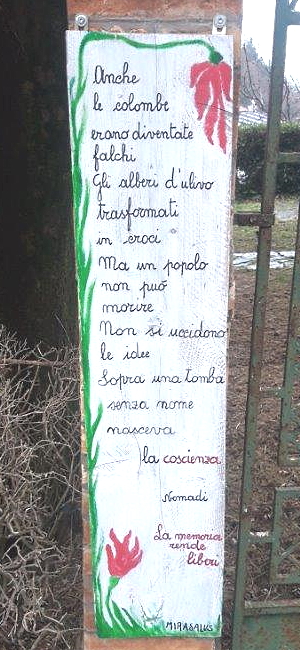 Anche
le colombe
erano diventate
falchi
Gli alberi d'ulivo
trasformati
in croci
Ma un popolo
non può
morire
Non si uccidono
le idee
Sopra una tomba
senza nome
nasceva
la coscienza
Nomadi
La memoria
rende
liberi
MIRASALUS